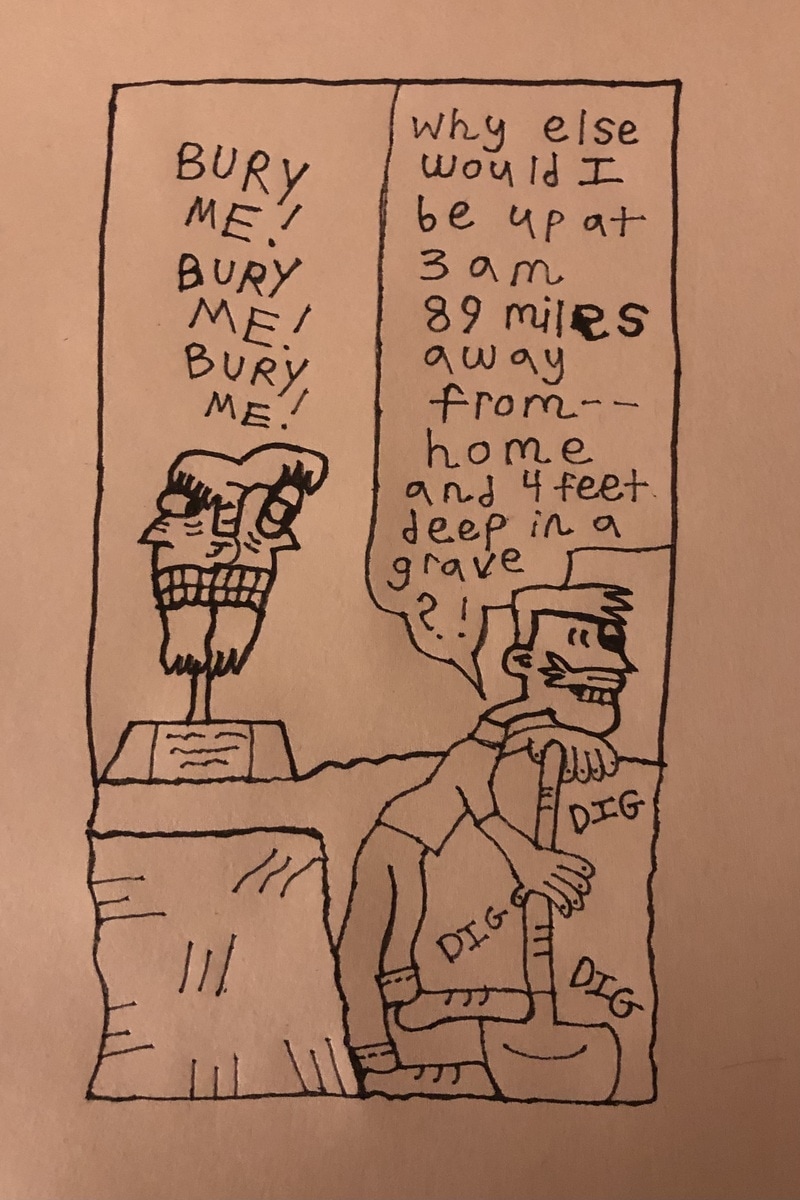 BURY
ME!
BURY
ME!
BURY
ME!
why else
would I
be up at
3 am
89 miles
away
from--
home
and 4 feet
deep in a
grave
?!
DIG
DIG
DIG